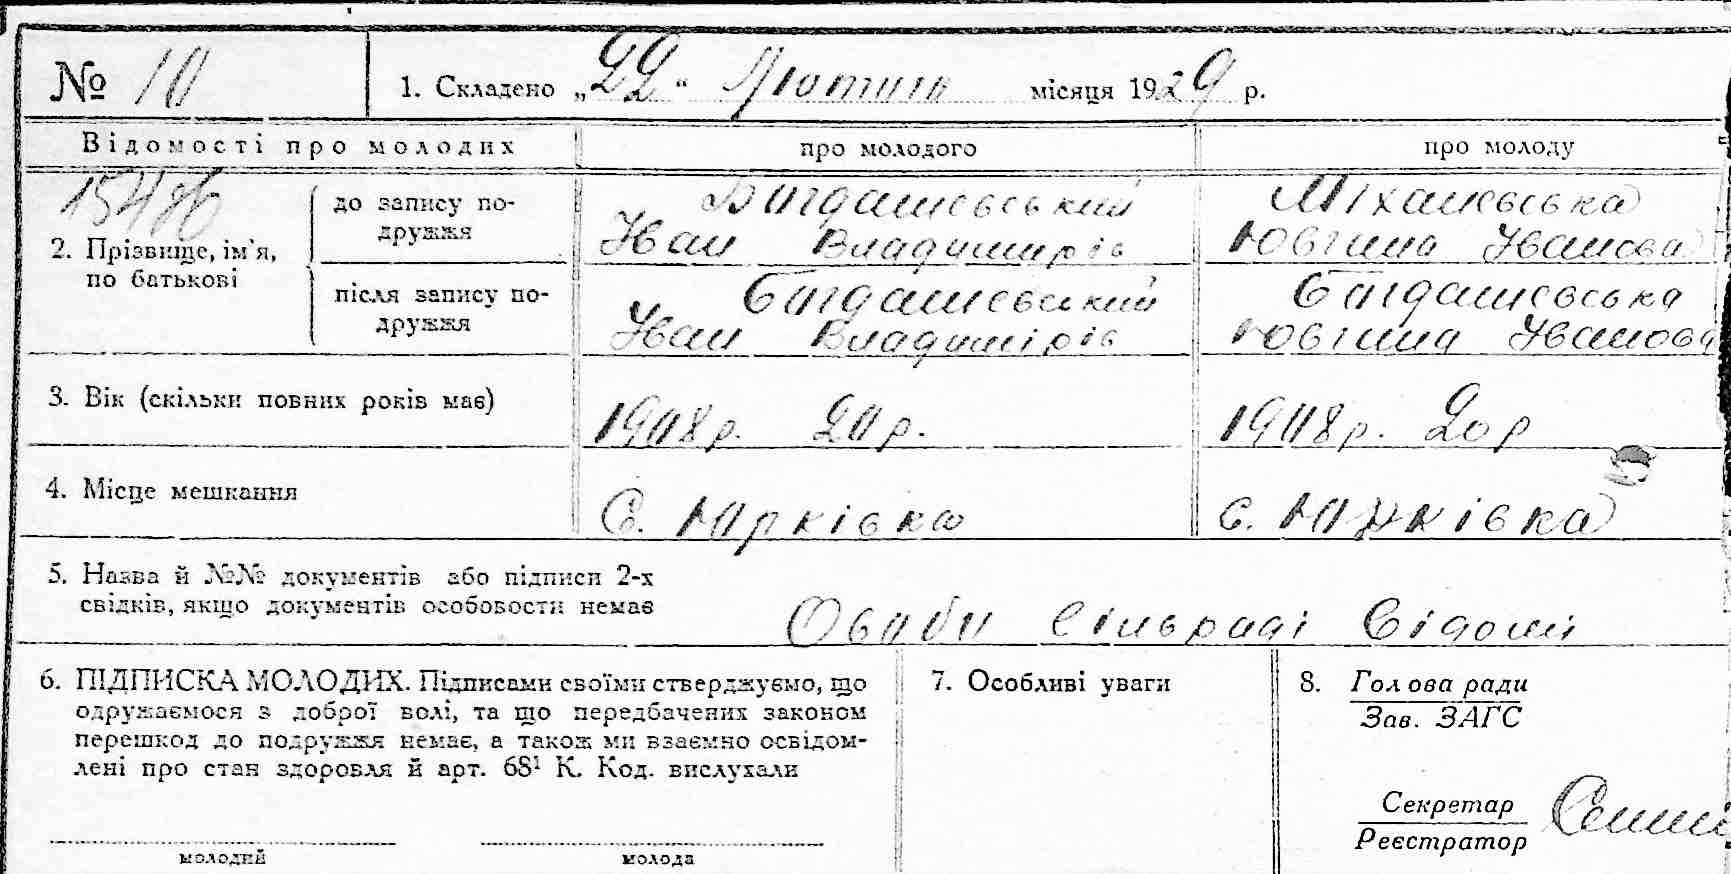 № 10
1. Складено „22“ Лютого місяця 1929 р.
Відомості про молодих
про молодого
про молоду
15486
2. Прізвище, ім'я, по батькові
до запису подружжя
Богдашевський
Іван Владимирів
Міхалевська
Ювгина Іванова
після запису подружжя
Богдашевський
Іван Владимірів
Богдашевська
Ювгина Іванова
3. Вік (скільки повних років має)
1908 р. 20 р.
1908 р. 20 р
4. Місце мешкання
С. Юрківка
с. Юрківка
5. Назва й №№ документів або підписи 2-х
свідків, якщо документів особовости немає
Особи Сільраді Відомі
6. ПІДПИСКА МОЛОДИХ. Підписами своїми стверджуємо, що
одружаємося з доброї волі, та що передбачених законом
перешкод до подружжя немає, а також ми взаємно освідом-
лені про стан здоровля й арт. 68¹ К. Код. вислухали
молодий
молода
7. Особливі уваги
8. Голова ради
Зав. ЗАГС
Секретар
Реєстратор